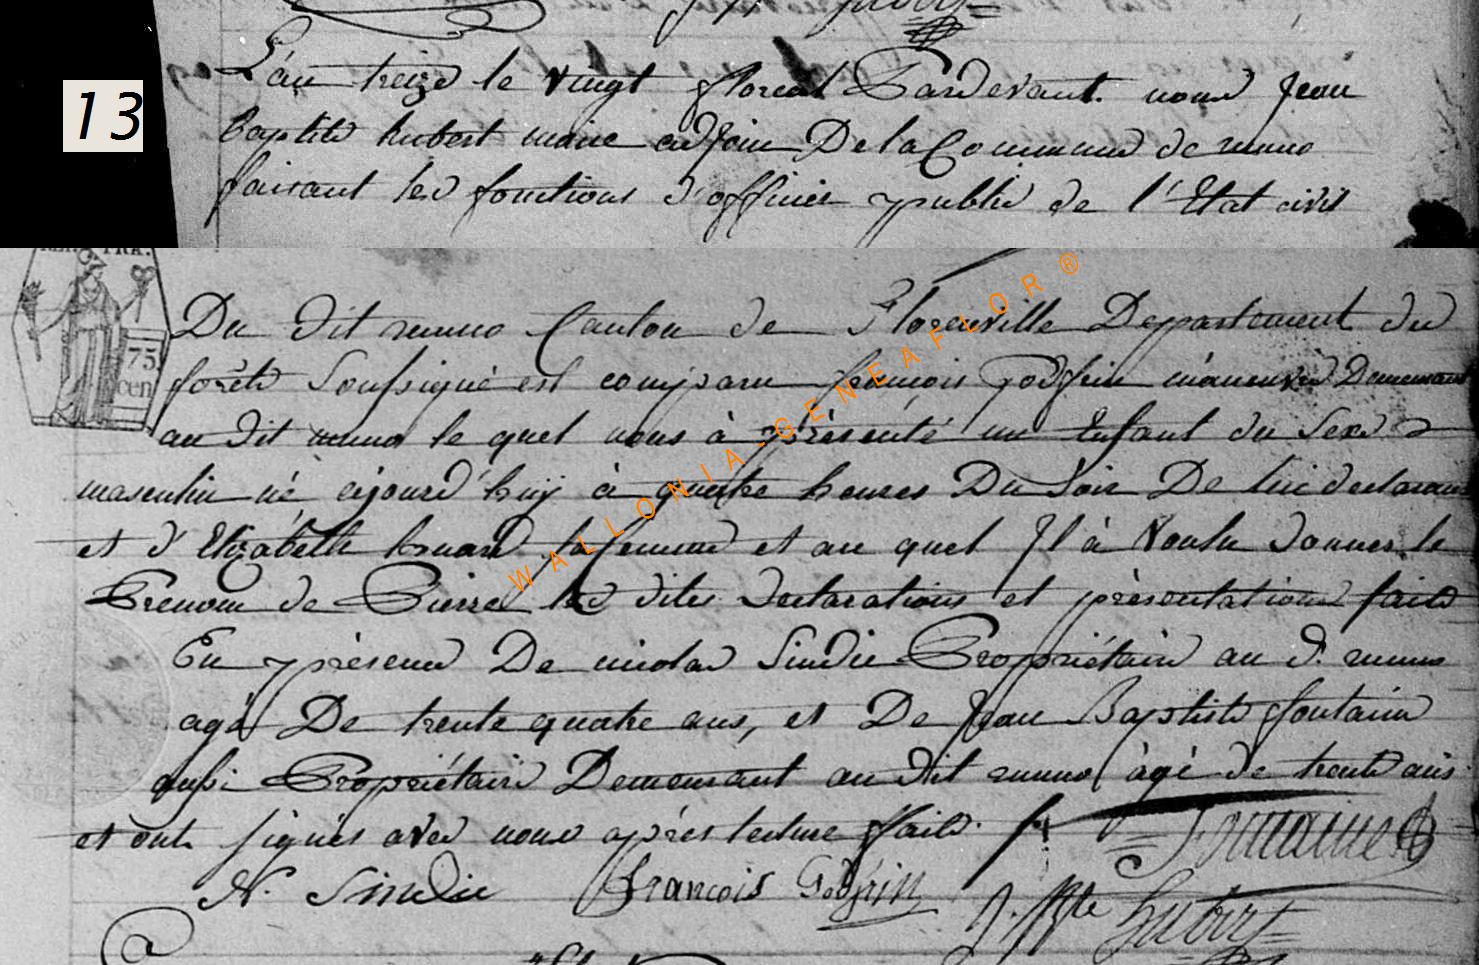 13
L'an treize le vingt floreal Pardevant nous Jean
Baptiste hubert maire adjoin De la Commune de muno
faisant les fonctions d'officier public de l'Etat civil
FRA.
75
cen
Du dit muno Canton de Florenville Departement du
forêts soussigné est comparu françois Godfrin manuvre Demeurant
au dit muno le quel nous à présenté un Enfant du Sexe
masculin né ajourd'huij à quatre heures Du soir De lui declarant
et d'Elizabeth huard sa femme et au quel Il à voulu donner le
Prenom de Pierre les dites declarations et présentation faite
En présence De nicolas Sindic Propriétaire au d. muno
agé De trente quatre ans, et De Jean Baptiste fontaine
aussi Propriétaire Demeurant au dit muno âgé de trente ans
et ont signés avec nous après lecture faite.
Fontaine
N. Sindic François Godfrin J. Bte hubert
WALLONIA-GENEAFLOR ®